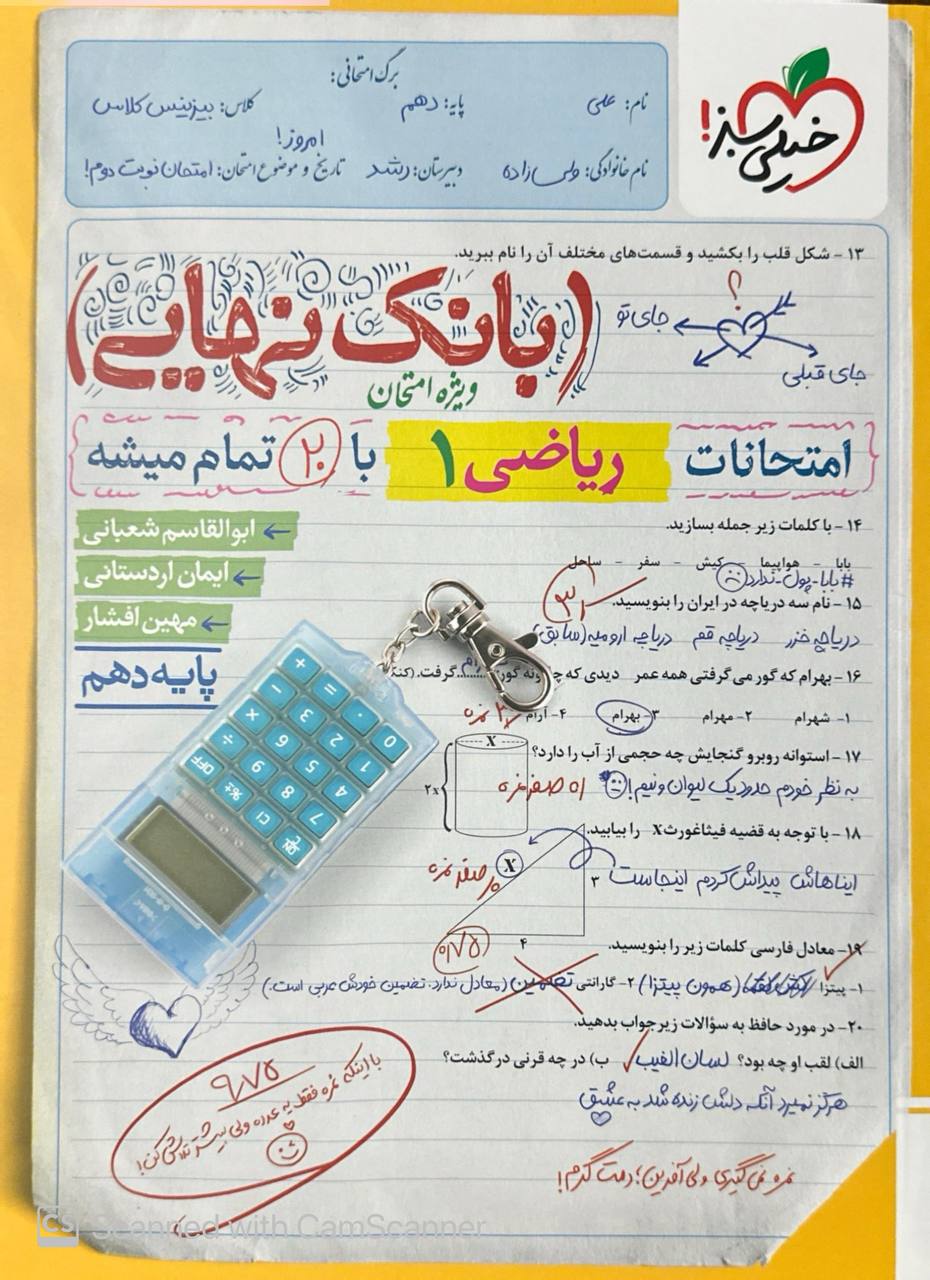 خیلی سبز!
برگ امتحانی:
نام: علی پایه: دهم کلاس: بیزینس کلاس
امروز!
نام خانوادگی: ولی زاده دبیرستان: رشد تاریخ و موضوع امتحان: امتحان نوبت دوم!
۱۳ - شکل قلب را بکشید و قسمت‌های مختلف آن را نام ببرید.
؟
جای تو
جای قبلی
(بانک نهایی)
ویژه امتحان
امتحانات ریاضی ۱ با ۲۰ تمام میشه
ابوالقاسم شعبانی
ایمان اردستانی
مهین افشار
پایه دهم
۱۴ - با کلمات زیر جمله بسازید.
بابا - هواپیما - کیش - سفر - ساحل
#بابا-پول-ندارد
۱۵ - نام سه دریاچه در ایران را بنویسید.
دریاچه خزر دریاچه قم دریاچه ارومیه (سابق)
۱۶ - بهرام که گور می‌گرفتی همه عمر دیدی که چگونه گور گرفت.
۱- شهرام ۲- مهرام ۳- بهرام ۴- آرام
۱۷ - استوانه روبرو گنجایش چه حجمی از آب را دارد؟
X
۲x
به نظر خودم حدود یک لیوان و نیم!
اه صفر نمره
۱۸ - با توجه به قضیه فیثاغورث X را بیابید.
ایناهاش پیداش کردم اینجاست
X
۳
۴
صفر نمره
۰/۷۵
۱۹- معادل فارسی کلمات زیر را بنویسید.
۱- پیتزا (همون پیتزا) ۲- گارانتی تضمین (معادل ندارد. تضمین خودش عربی است.)
۲۰- در مورد حافظ به سؤالات زیر جواب بدهید.
الف) لقب او چه بود؟ لسان الغیب ب) در چه قرنی درگذشت؟
هرگز نمیرد آنکه دلش زنده شد به عشق
نمره نمی‌گیری ولی آفرین؛ دمت گرم!
۹/۷۵
با اینکه نمره فقط یه عدده ولی بیشتر تلاش کن!
+ = . 0
− 3 2 1
× 6 5 4
÷ 9 8 7
OFF %± CI ON/C
CS Scanned with CamScanner